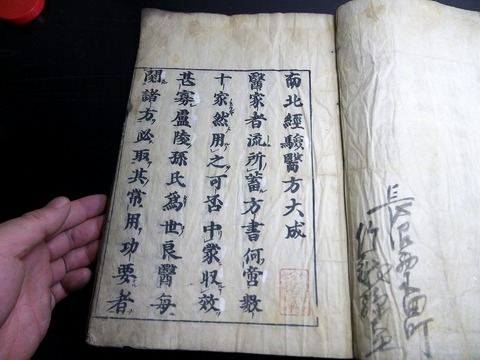 南北經驗醫方大成
醫家者流所蓄方書何啻數
十家然用之可否中蒙収效
甚寡盧陵孫氏爲世良醫每
閱諸方必取其常用功要者
田町